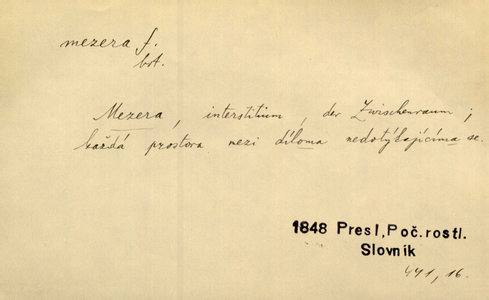 mezera f.
bot.
Mezera, interstitium, der Zwischenraum;
každá prostora mezi díloma nedotýkajícíma se.
1848 Presl, Poč. rostl.
Slovník
441, 16.